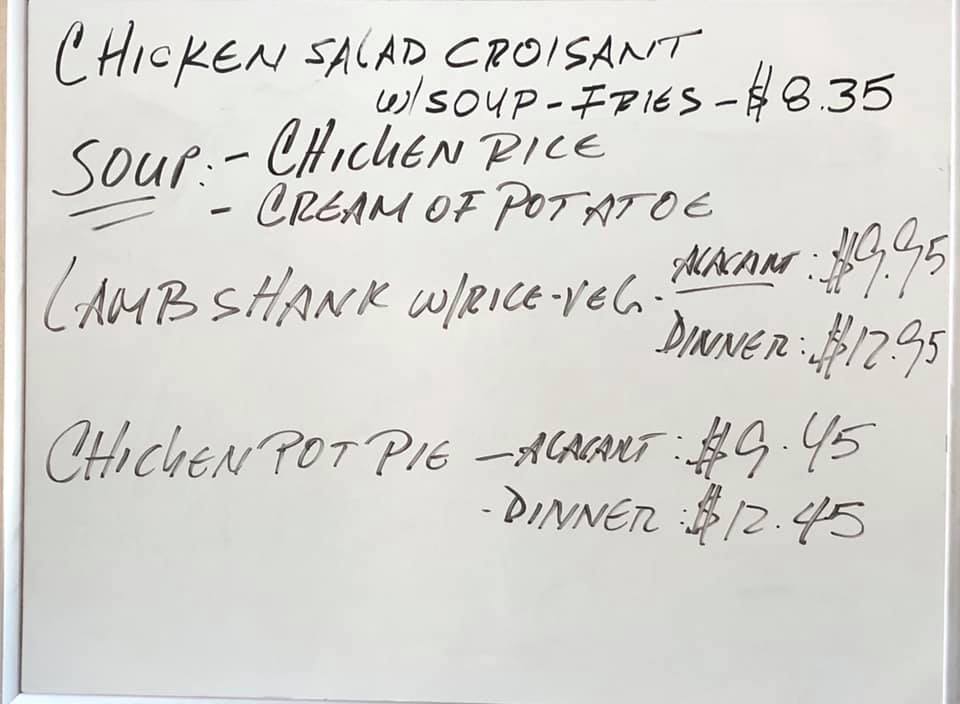 CHICKEN SALAD CROISANT
W/SOUP-FRIES-$8.35
SOUP:- CHICKEN RICE
- CREAM OF POTATOE
LAMB SHANK W/RICE-VEG. ALACANT: $9.95
DINNER: $12.95
CHICKEN POT PIE - ALACANT: $9.45
- DINNER: $12.45